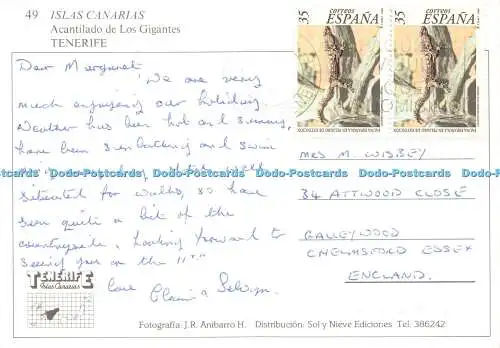 49 ISLAS CANARIAS
Acantilado de Los Gigantes
TENERIFE
35 correos ESPAÑA
35 correos ESPAÑA
FAUNA ESPAÑOLA EN PELIGRO DE EXTINCION
FAUNA ESPAÑOLA EN PELIGRO DE EXTINCION
Dear Margaret,
We are very
much enjoying our holiday.
Weather has been hot and sunny,
have been sunbathing and swim
Hotel well
situated for walks, so have
seen quite a bit of the
countryside, looking forward to
seeing you on the 11th
love Claire & Selwyn.
MRS M. WISBEY
34 ATTWOOD CLOSE
GALLEYWOOD
CHELMSFORD ESSEX
ENGLAND.
Dodo-Postcards Dodo-Postcards Dodo-Postcards Dodo-Postcards
TENERIFE
Islas Canarias
Fotografía: J.R. Anibarro H. Distribución: Sol y Nieve Ediciones Tel. 386242